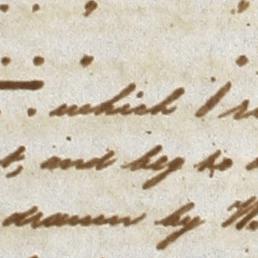 which I
and beg to
drawn by W